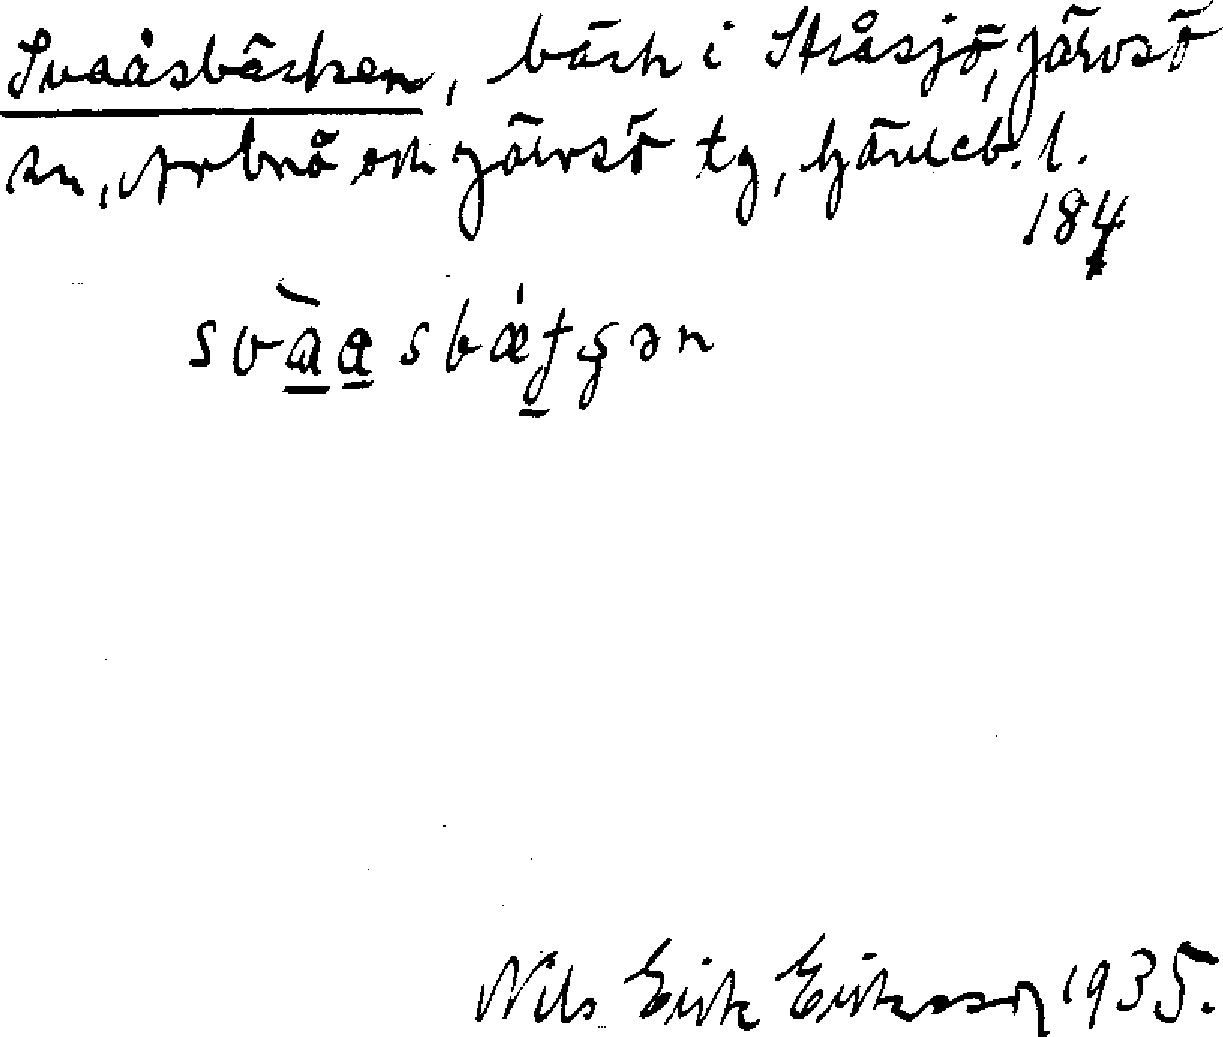 Svaåsbäcken, bäck i Stråsjö, Järvsö
sn, Arbrå och Järvsö tg, Gävleb. l.
184
svàasbǽtçən
Nils Erik Eriksson 1935.